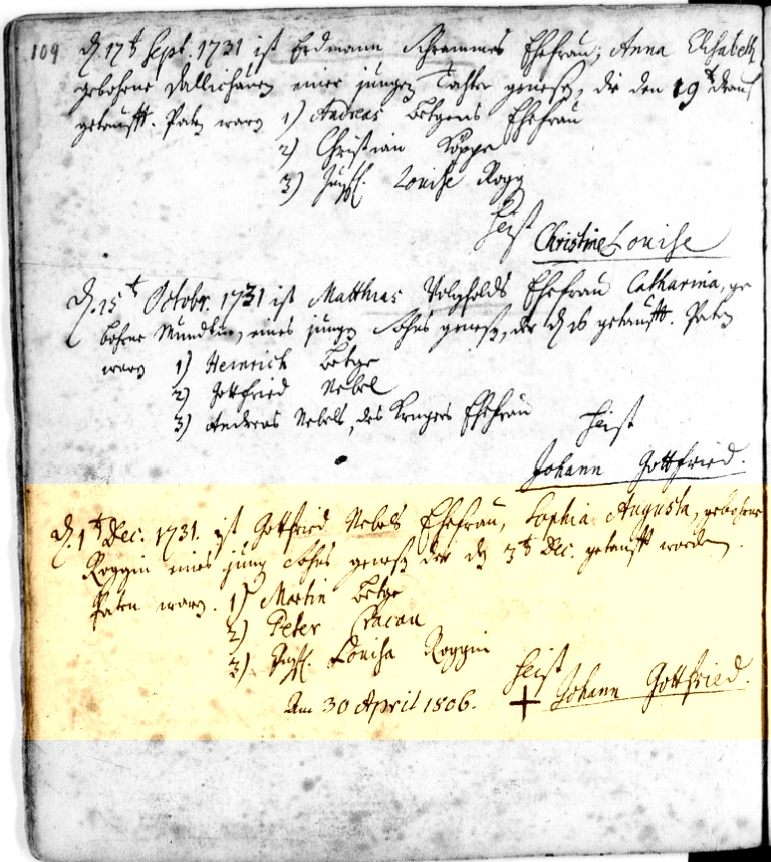 109
D. 17t Sept. 1731 ist Erdmann Schrammes Ehefrau, Anna Elisabeth
gebohrne einer jungen Tochter geneßen, die den 19t drauf
getaufft. Paten waren 1) Andreas Betgens Ehefrau
2) Christian Köppe
3) Jungf. Louise Rogg
heist
Christine Louise
D. 15t Octobr. 1731 ist Matthias Ehefrau Catharina, ge
bohrne eines jungen Sohns geneßen, der d. 16 getaufft. Paten
waren 1) Heinrich Betge
2) Gottfried Nebel
3) Andreas Nebels, des Krugers Ehefrau
heist
Johann Gottfried.
D. 1t Dec. 1731. ist Gottfried Nebels Ehefrau, Sophia Augusta, gebohrne
Roggin eines jungen Sohns geneßen der den 3t Dec. getaufft worden.
Paten waren. 1) Martin Betge
2) Peter Cacau
3) Jungf. Lovisa Roggin
heist
Am 30 April 1806. + Johann Gottfried.